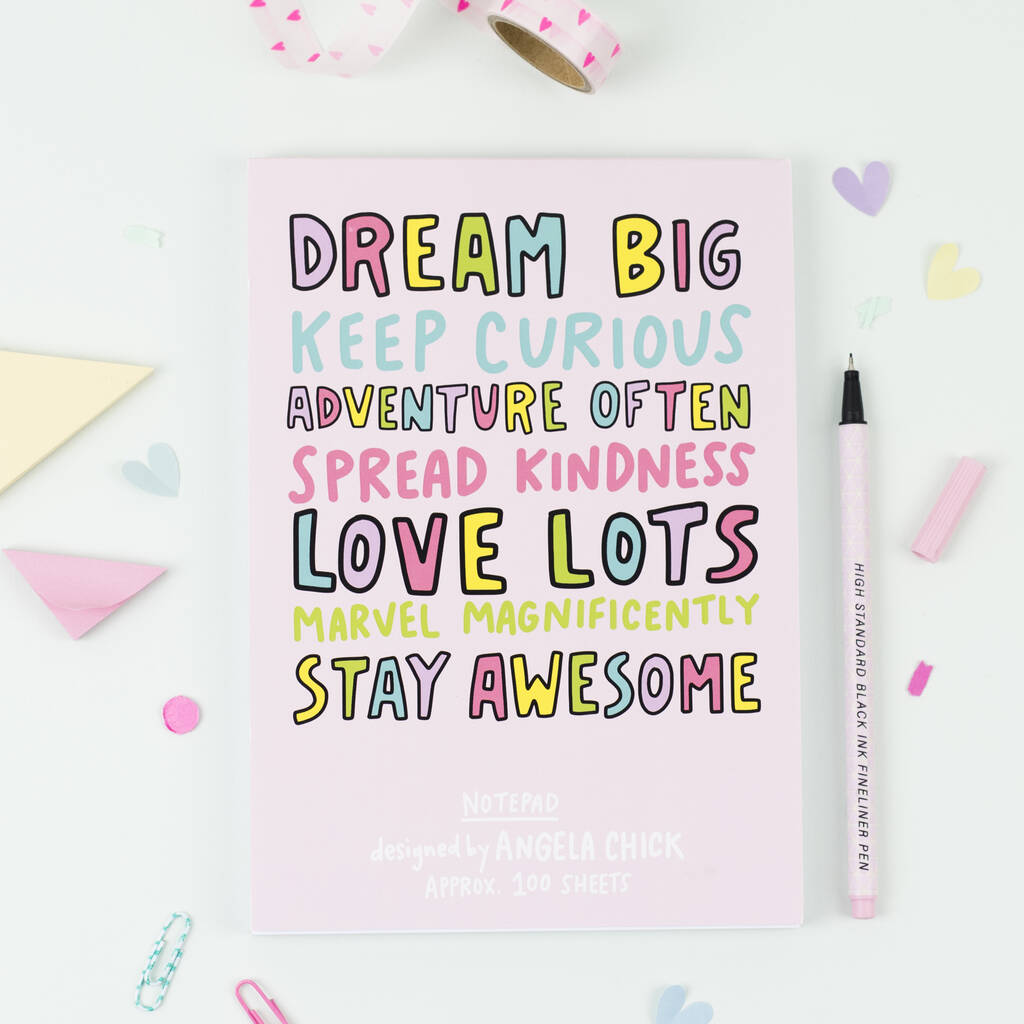 DREAM BIG
KEEP CURIOUS
ADVENTURE OFTEN
SPREAD KINDNESS
LOVE LOTS
MARVEL MAGNIFICENTLY
STAY AWESOME
NOTEPAD
designed by ANGELA CHICK
APPROX. 100 SHEETS
HIGH STANDARD BLACK INK FINELINER PEN